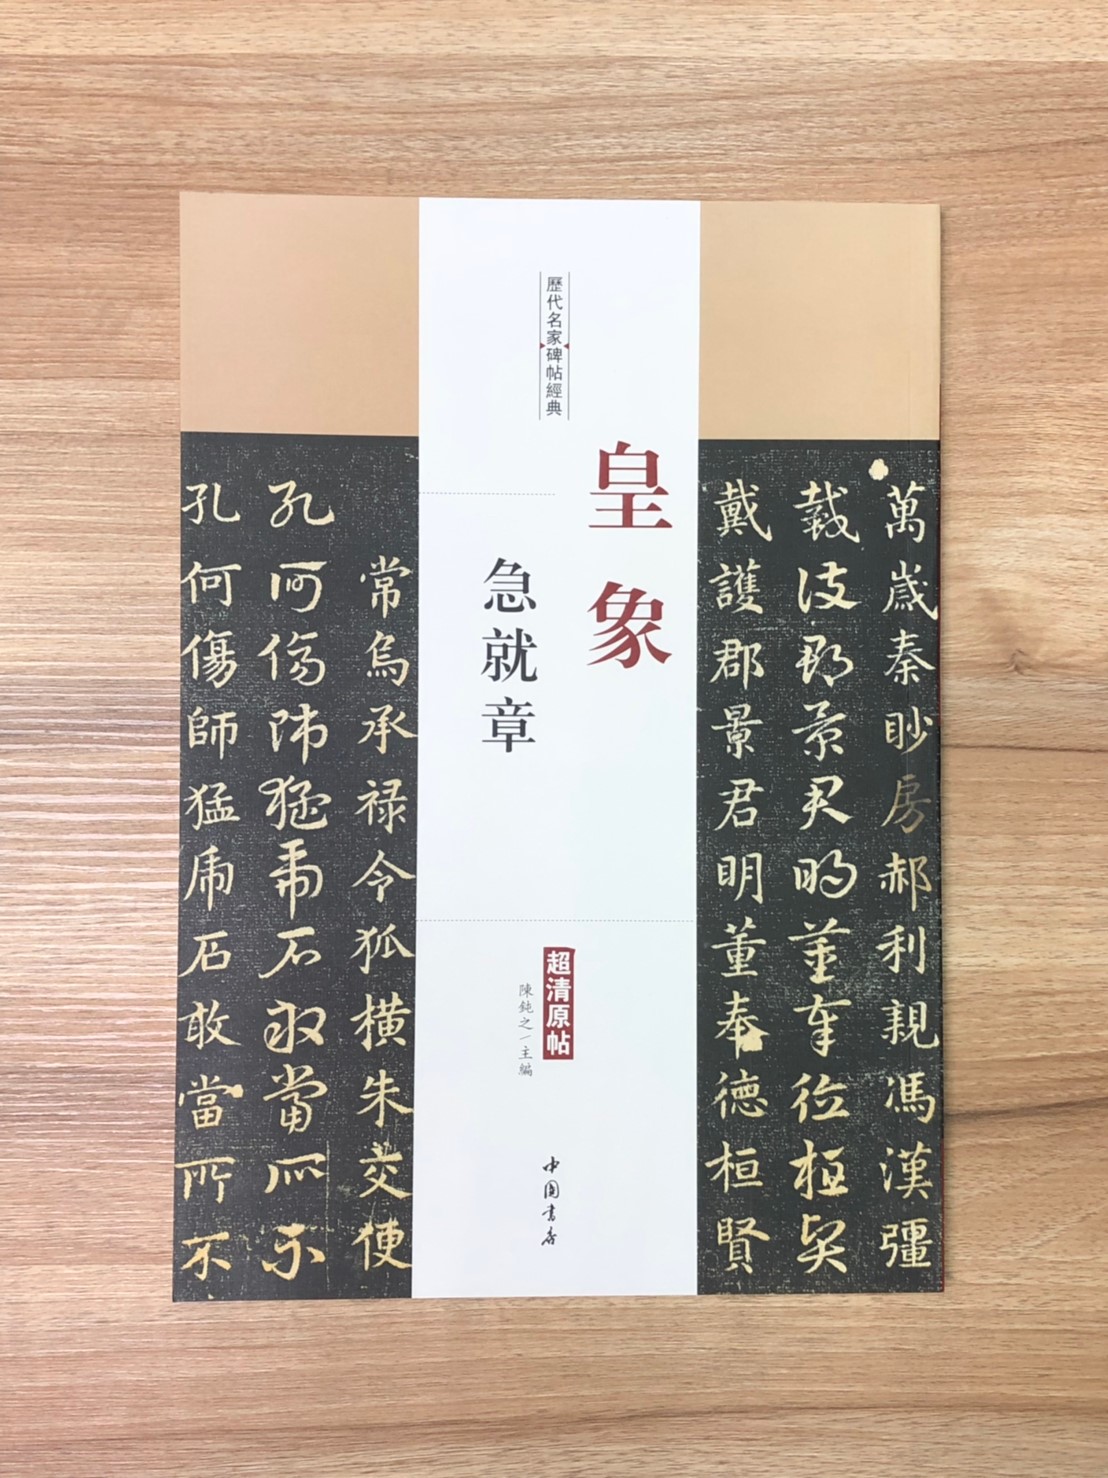 歷代名家碑帖經典
皇象
急就章
超清原帖
陳鈍之/主編
中国書店
萬歲秦眇房郝利親馮漢彊
戴護郡景君明董奉德桓賢
戴護郡景君明董奉德桓賢
常烏承禄令狐横朱交便
孔何傷師猛虎石敢當所不
孔何傷師猛虎石敢當所不